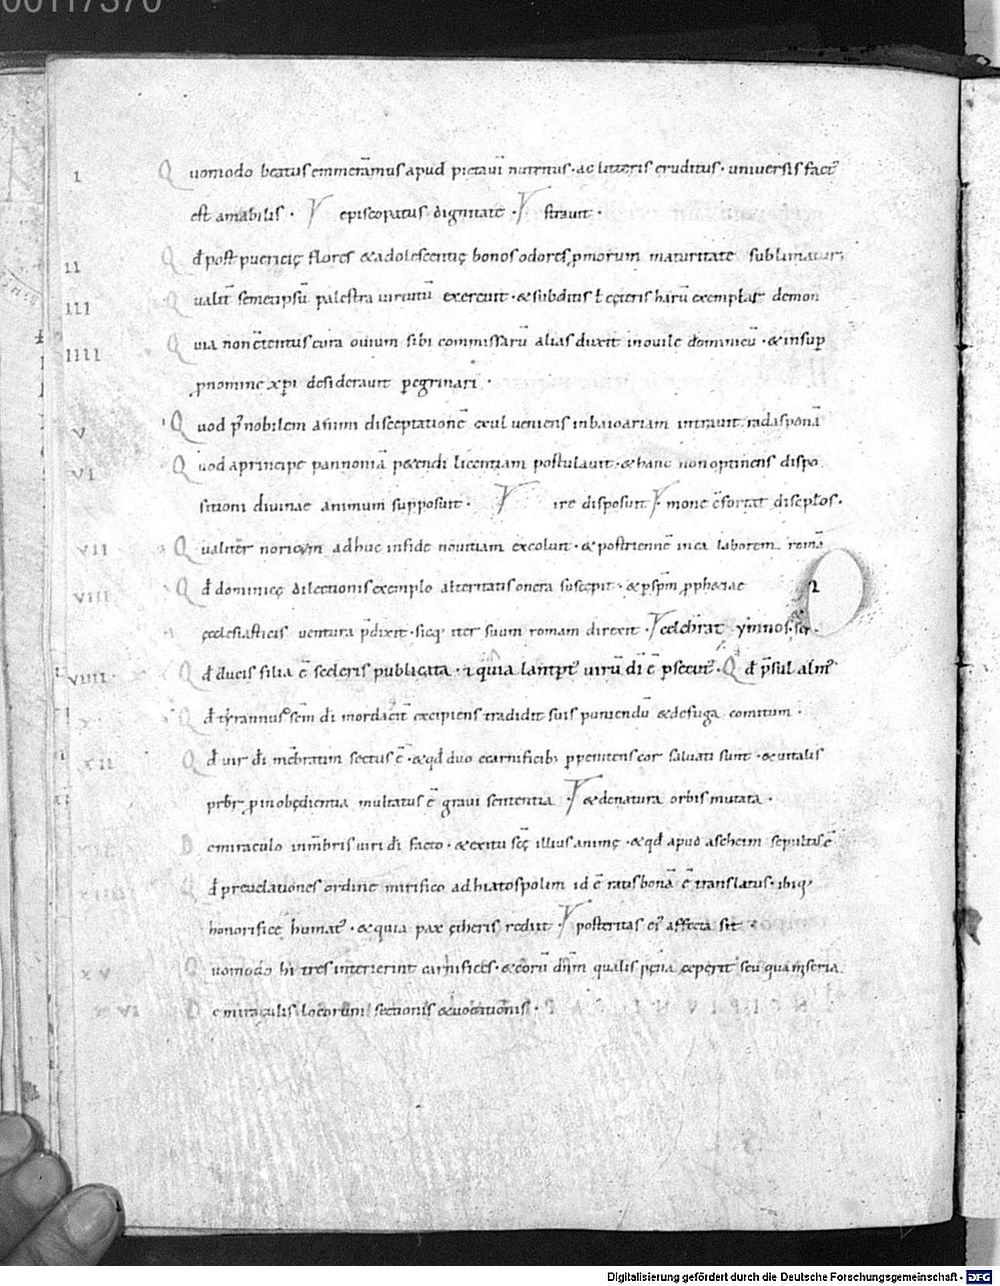 00117370
I Quomodo beatus emmerāmus apud pictaui nutritus · ac litteris eruditus · uniuersis fact᷒
est amabilis · episcopatus dignitate · strauit ·
II Qd̄ post puericię flores & adolescentię bonos odores p̱ morum maturitate sublimatur;
III Qualit̄ semetipsū palestra uirtutū exercuit · & subditis ł cęteris harū exemplar demon
IIII Quia non c̄tentus cura ouium sibi commissarū alias duxit in ouile dominicū · & insup̱
ꝓ nomine xp̄i desiderauit pegrinari ·
V Quod p̄ nobilem animi disceptationē exul ueniens in baioariam intrauit radasponā
VI Quod a principe pannoniā petendi licentiam postulauit · & hanc non optinens dispo
sitioni diuinae animum supposuit · ire disposuit mone c̄fortat discipłos ·
VII Qualiter noricum adhuc in fide nouitiam excoluit · & post triennē in ea laborem romā
VIII Qd̄ dominicę dilectionis exemplo alteritatis onera suscepit · & p̱ sp̄m ꝓphetiae
ęcclesiasticis uentura p̄dixit · sicq; iter suum romam direxit · celebrat ymnos ·
VIIII Qd̄ ducis filia ē sceleris publicata · & quia lantp̱t᷒ uirū dī ē p̱secut᷒ · Qd̄ p̄sul alm᷒
Qd̄ tyrannus sc̄m dī mordacit̄ excipiens tradidit suis puniendū & de fuga comitum ·
XII Qd̄ uir dī mēbratim sectus ē · & qd̄ duo e carnificib; p̱ penitens cor saluati sunt · & uitalis
prb̄r ꝓ inobędientia multatus ē graui sententia · & de natura orbis mutata ·
De miraculo in mēbris uiri dī facto · & exitu sc̄ę illius animę · & qd̄ apud ascheim sepultus ē
Qd̄ p̱ reuelationes ordine mirifico ad hiatospolim id ē ratisbonā ē translatus · ibiq;
honorifice humat᷒ · & quia pax ętheris rediit · posteritas ei᷒ affecta sit ·
Quomodo hi tres interierint carnifices · & eorū dn̄m qualis pęna ceperit seu quam seria
De miraculis locorum sectionis & uocationis ·
Digitalisierung gefördert durch die Deutsche Forschungsgemeinschaft - DFG